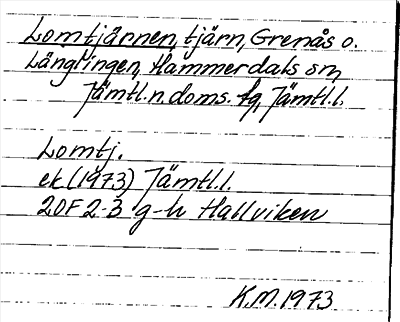 Lomtjärnen, tjärn, Grenås o.
Långlingen, Hammerdals sn,
Jämtl. n. doms. fg, Jämtl. l.
Lomtj.
ek (1973) Jämtl. l.
20F 2-3 g-h Hallviken
K.M. 1973